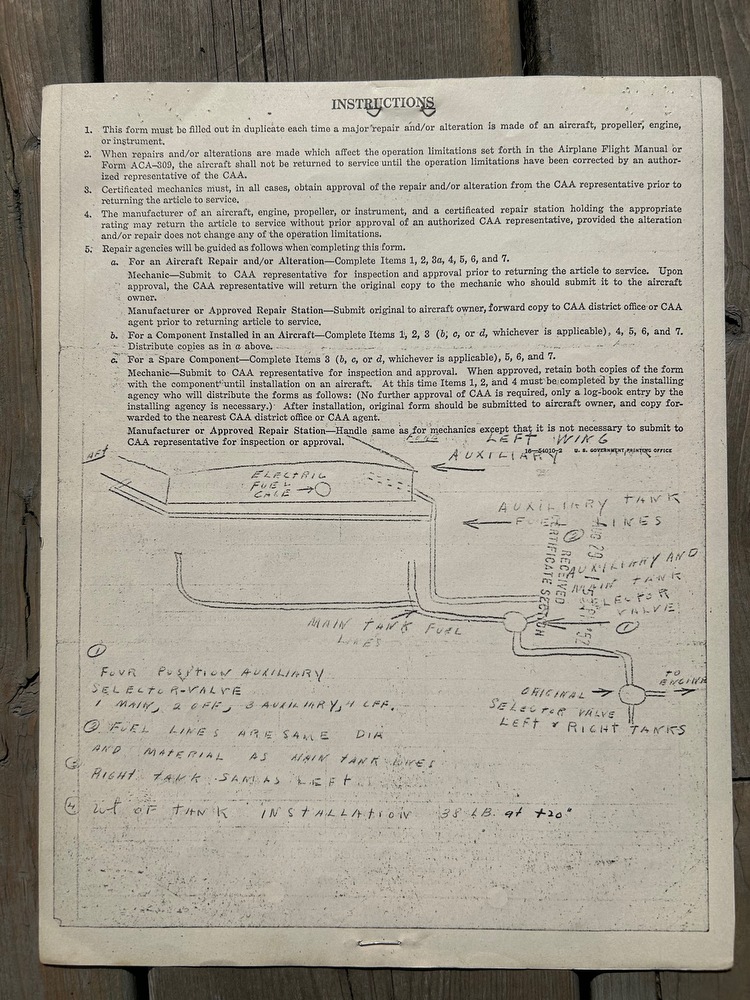 INSTRUCTIONS
1. This form must be filled out in duplicate each time a major repair and/or alteration is made of an aircraft, propeller, engine,
or instrument.
2. When repairs and/or alterations are made which affect the operation limitations set forth in the Airplane Flight Manual or
Form ACA-309, the aircraft shall not be returned to service until the operation limitations have been corrected by an author-
ized representative of the CAA.
3. Certificated mechanics must, in all cases, obtain approval of the repair and/or alteration from the CAA representative prior to
returning the article to service.
4. The manufacturer of an aircraft, engine, propeller, or instrument, and a certificated repair station holding the appropriate
rating may return the article to service without prior approval of an authorized CAA representative, provided the alteration
and/or repair does not change any of the operation limitations.
5. Repair agencies will be guided as follows when completing this form.
a. For an Aircraft Repair and/or Alteration—Complete Items 1, 2, 3a, 4, 5, 6, and 7.
Mechanic—Submit to CAA representative for inspection and approval prior to returning the article to service. Upon
approval, the CAA representative will return the original copy to the mechanic who should submit it to the aircraft
owner.
Manufacturer or Approved Repair Station—Submit original to aircraft owner, forward copy to CAA district office or CAA
agent prior to returning article to service.
b. For a Component Installed in an Aircraft—Complete Items 1, 2, 3 (b, c, or d, whichever is applicable), 4, 5, 6, and 7.
Distribute copies as in a above.
c. For a Spare Component—Complete Items 3 (b, c, or d, whichever is applicable), 5, 6, and 7.
Mechanic—Submit to CAA representative for inspection and approval. When approved, retain both copies of the form
with the component until installation on an aircraft. At this time Items 1, 2, and 4 must be completed by the installing
agency who will distribute the forms as follows: (No further approval of CAA is required, only a log-book entry by the
installing agency is necessary.) After installation, original form should be submitted to aircraft owner, and copy for-
warded to the nearest CAA district office or CAA agent.
Manufacturer or Approved Repair Station—Handle same as for mechanics except that it is not necessary to submit to
CAA representative for inspection or approval.
LEFT WING
16—54010-2 U. S. GOVERNMENT PRINTING OFFICE
AUXILIARY
AFT
ELECTRIC
FUEL
GAGE
AUXILIARY TANK
FUEL LINES
2
RECEIVED
CERTIFICATE SECTION
AUXILIARY AND
MAIN TANK
SELECTOR
VALVE
1
MAIN TANK FUEL
LINES
1
FOUR POSITION AUXILIARY
SELECTOR-VALVE
1 MAIN, 2 OFF, 3 AUXILIARY, 4 OFF.
TO
ENGINE
ORIGINAL
SELECTOR VALVE
LEFT & RIGHT TANKS
2 FUEL LINES ARE SAME DIA
AND MATERIAL AS MAIN TANK LINES
3 RIGHT TANK SAME AS LEFT
4 WT OF TANK INSTALLATION 38 LB. at +20"